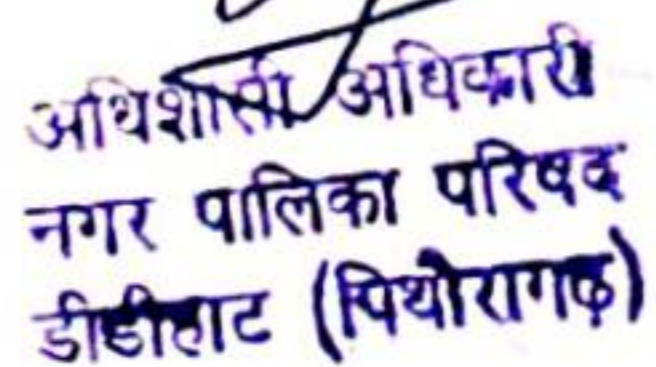 अधिशासी अधिकारी
नगर पालिका परिषद
डीडीहाट (पिथौरागढ़)